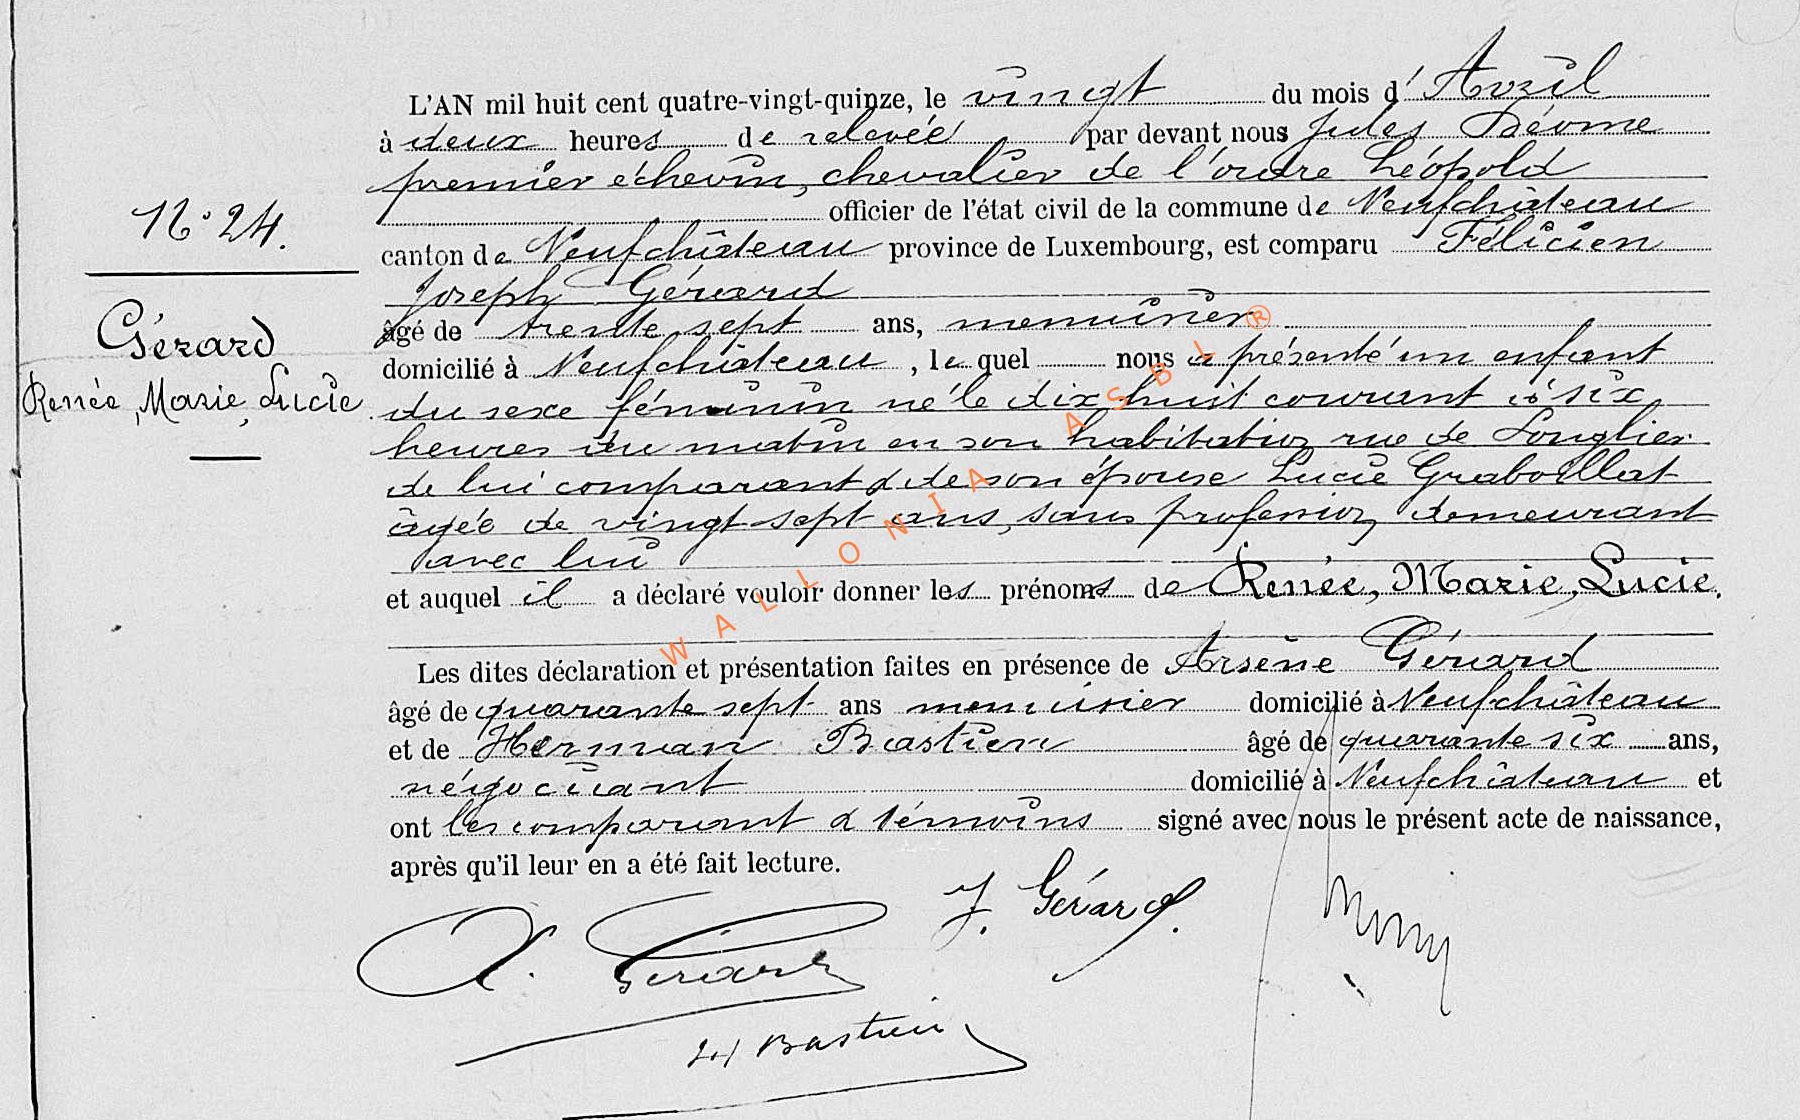 L'AN mil huit cent quatre-vingt-quinze, le vingt du mois d'Avril
à deux heures de relevée par devant nous Jules
premier échevin, chevalier de l'ordre Léopold
officier de l'état civil de la commune de Neufchâteau
N° 24.
canton de Neufchâteau province de Luxembourg, est comparu Félicien
Joseph Gérard
Gérard
âgé de trente sept ans, menuisier
domicilié à Neufchâteau, lequel nous a présenté un enfant
Renée, Marie, Lucie
du sexe féminin né le dix huit courant à six
heures du matin en son habitation rue de Longlier
de lui comparant & de son épouse Lucie Graboillat
âgée de vingt-sept ans, sans profession demeurant
avec lui
et auquel il a déclaré vouloir donner les prénoms de Renée, Marie, Lucie.
Les dites déclaration et présentation faites en présence de Arsène Gérard
âgé de quarante sept ans menuisier domicilié à Neufchâteau
et de Herman Bastien âgé de quarante six ans,
négociant domicilié à Neufchâteau et
ont les comparant & témoins signé avec nous le présent acte de naissance,
après qu'il leur en a été fait lecture.
A. Gérard
J. Gérard.
H Bastien
WALLONIA ASBL ®